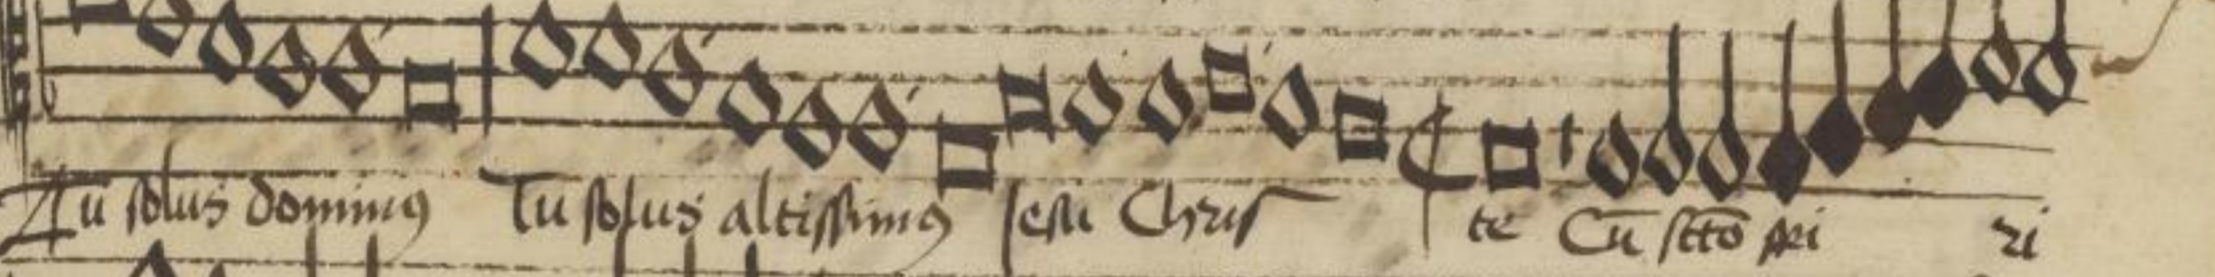 Tu solus dominꝯ Tu solus altissimꝯ Iesu Chris te Cū sctō spi ri